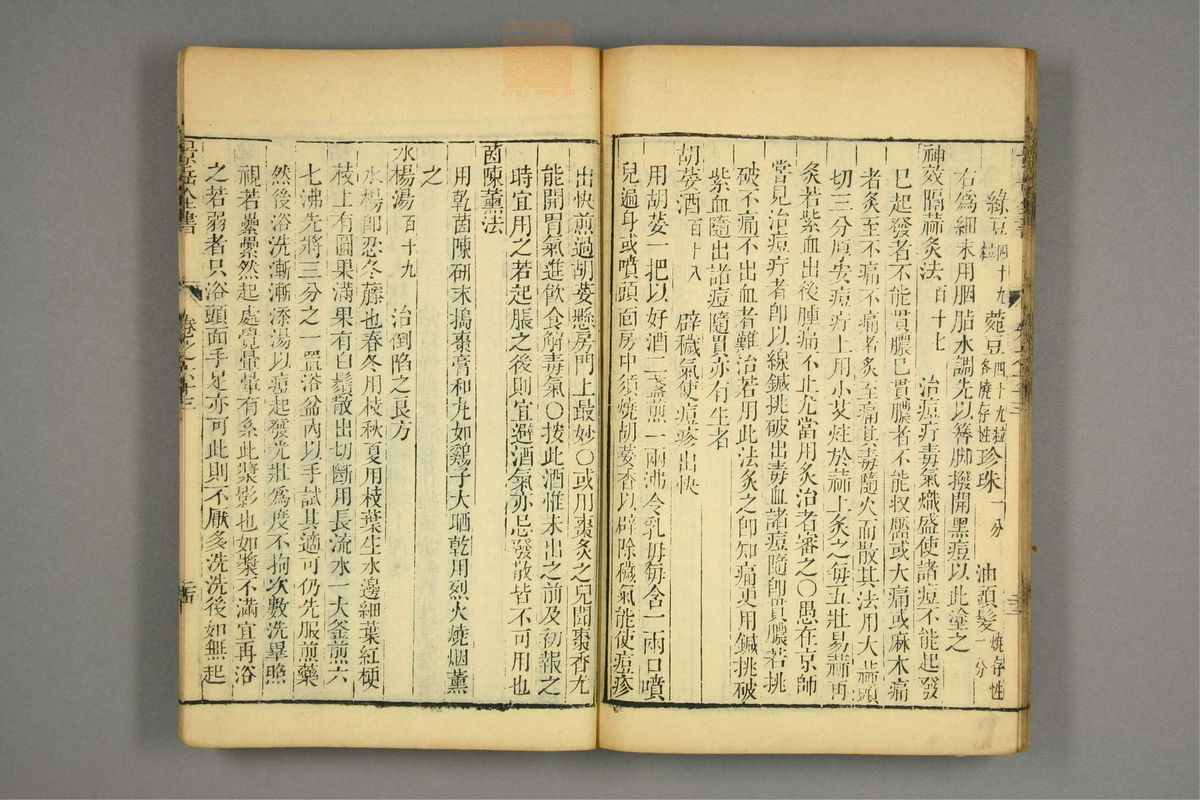 綠豆四十九粒 菀豆四十九粒各燒存性 珍珠一分 油頭髮燒存性一分
右爲細末用胭脂水調先以簪脚撥開黑痘以此塗之
神效隔蒜灸法百十七 治痘疔毒氣熾盛使諸痘不能起發
已起發者不能貫膿已貫膿者不能收靨或大痛或麻木痛
者灸至不痛不痛者灸至痛其毒隨火而散其法用大蒜頭
切三分厚安痘疔上用小艾炷於蒜上灸之每五壯易蒜再
灸若紫血出後腫痛不止尤當用灸治者審之○愚在京師
嘗見治痘疔者即以線鍼挑破出毒血諸痘隨即貫膿若挑
破不痛不出血者難治若用此法灸之即知痛更用鍼挑破
紫血隨出諸痘隨貫亦有生者
胡荽酒百十八 辟穢氣使痘疹出快
用胡荽一把以好酒二盞煎一兩沸令乳母每含一兩口噴
兒遍身或噴頭面房中須燒胡荽香以辟除穢氣能使痘疹
出快煎過胡荽懸房門上最妙○或用棗灸之兒聞棗香尤
能開胃氣進飲食解毒氣○按此酒惟未出之前及初報之
時宜用之若起脹之後則宜避酒氣亦忌發散皆不可用也
茵陳薰法
用乾茵陳研末搗棗膏和丸如鷄子大晒乾用烈火燒烟薰
之
水楊湯百十九 治倒陷之良方
水楊即忍冬藤也春冬用枝秋夏用枝葉生水邊細葉紅梗
枝上有圓果滿果有白鬚散出切斷用長流水一大釜煎六
七沸先將三分之一置浴盆內以手試其適可仍先服煎藥
然後浴洗漸漸添湯以痘起發光壯爲度不拘次數洗畢照
視若纍纍然起處覺暈暈有系此漿影也如漿不滿宜再浴
之若弱者只浴頭面手足亦可此則不厭多洗洗後如無起
景岳全書
卷之六十三